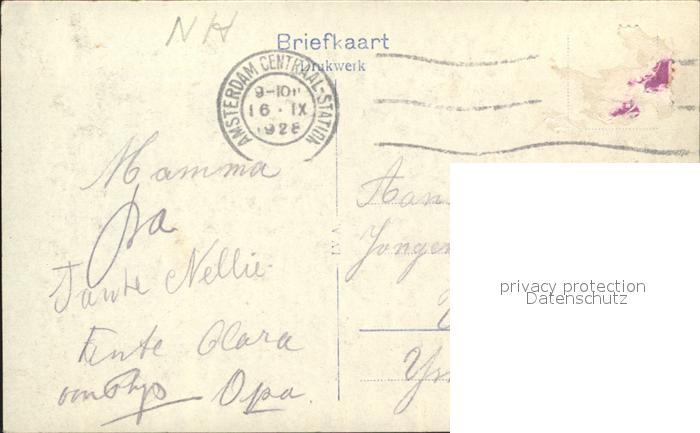 NH
Briefkaart
Drukwerk
AMSTERDAM CENTRAAL-STATION
9-10V
16·IX
1928
Mamma
Pa
Tante Nellie
Tante Clara
Opa.
Aan
Jongen
privacy protection
Datenschutz